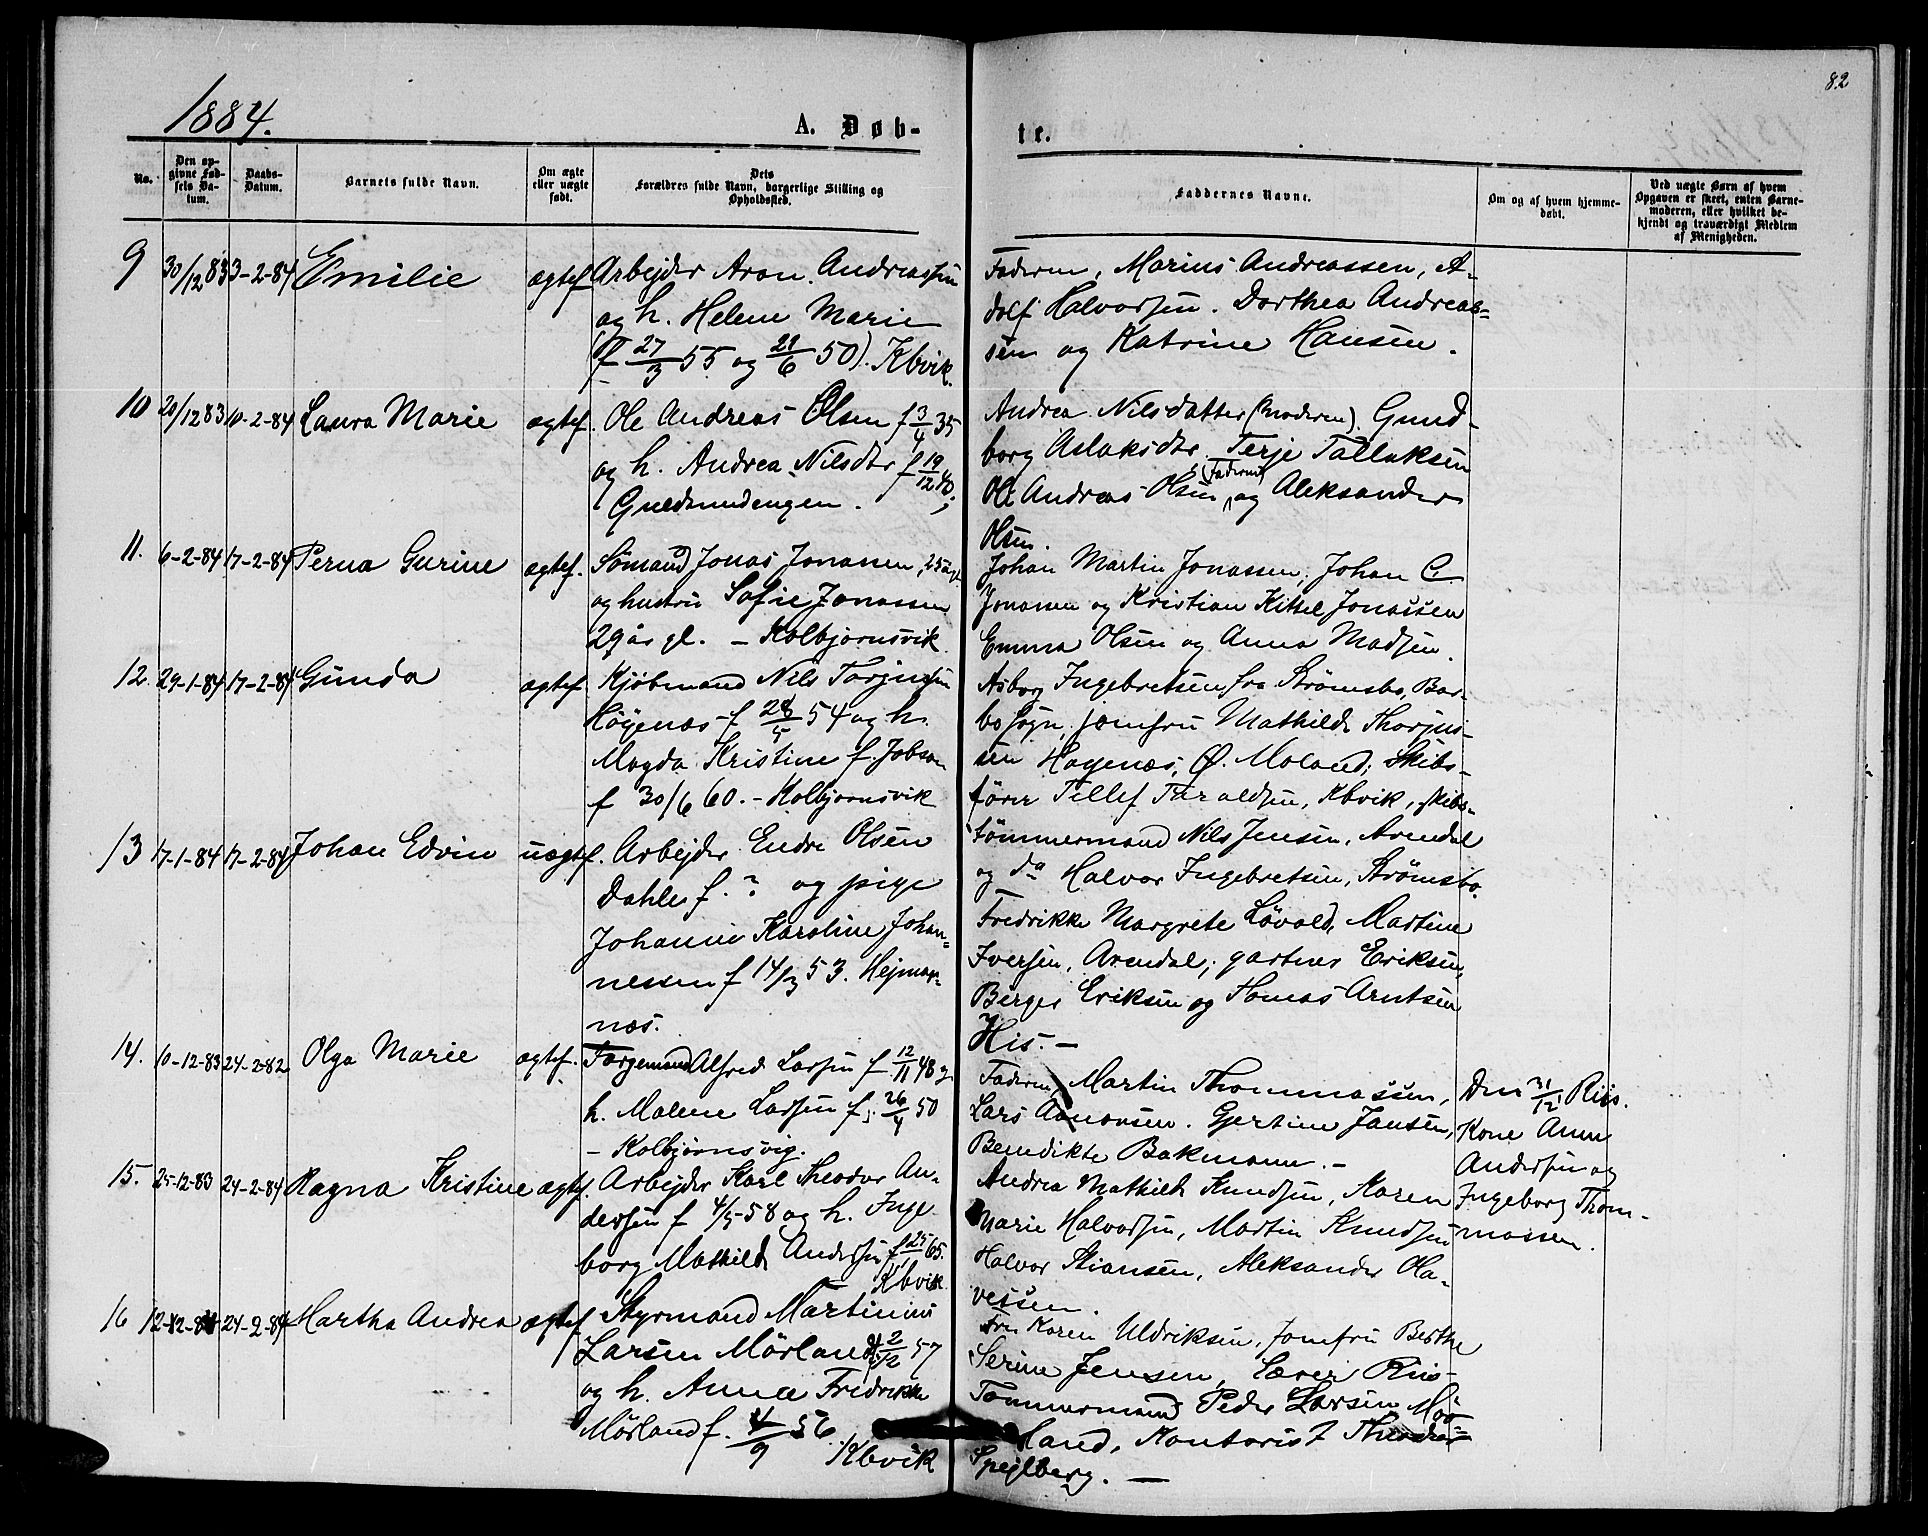 82
1884.
A. Døb-
te.
No.
Den op-
givne Fød-
sels Da-
tum.
Daabs-
Datum.
Barnets fulde Navn.
Om ægte
eller uægte
født.
Dets
Forældres fulde Navn, borgerlige Stilling og
Opholdssted.
Faddernes Navne.
Om og af hvem hjemme-
døbt.
Ved uægte Børn af hvem
Opgaven er skeet, enten Barne-
moderen, eller hvilket be-
kjendt og troværdigt Medlem
af Menigheden.
9 30/12 83 3-2-84 Emilie ægtef. Arbejder Aron Andreassen
og h. Helene Marie
(f 27/3 55 og 29/6 50). Kbvik.
Faderen, Marius Andreassen, A-
dolf Halvorsen. Dorthea Andreas-
sen og Katrine Hansen.
10 20/12 83 10-2-84 Laura Marie ægtef. Ole Andreas Olsen f 3/4 35
og h. Andrea Nilsdtr f 19/12 40;
Guldsmedengen.
Andrea Nilsdatter (Moderen). Gund-
borg Aslaksdtr, Terje Tallaksen
Ole Andreas Olsen (Faderen) og Aleksander
Olsen.
11. 6-2-84 17-2-84 Perna Gurine ægtef. Sømand Jonas Jonassen, 25 år gl
og hustru Sofie Jonassen
29 år gl. - Kolbjørnsvik
Johan Martin Jonassen, Johan C.
Jonassen og Kristian Kittel Jonassen
Emma Olsen og Anna Madsen.
12. 29-1-84 17-2-84 Gunda ægtef. Kjøbmand Nils Torjussen
Høgenæs f 28/5 54 og h.
Magda Kristine f. Jobsen
f 30/6 60. - Kolbjørnsvik
Asborg Ingebretsen fra Strømsbo, Bar-
bo sogn, jomfru Mathilde Thorjus-
sen Høgenæs, Ø. Moland; Skibs-
fører Tellef Taraldsen, Kbvik, skibs-
tømmermand Nils Jensen, Arendal
og do Halvor Ingebretsen, Strømsbo.
13 17-1-84 17-2-84 Johan Edvin uægtef. Arbejder Endre Olsen
Dahle f. ? og pige
Johanne Karoline Johan-
nessen f 14/3 53. Hejmer-
næs.
Fredrikke Margrete Løvold, Martine
Iversen, Arendal; gartner Eriksen,
Berger Eriksen og Tomas Arntsen
His. -
14. 10-12-83 24-2-82 Olga Marie ægtef. Færgemand Alfred Larsen f 12/11 48 og
h. Malene Larsen f. 26/4 50
- Kolbjørnsvig.
Faderen, Martin Thommassen,
Lars Aanonsen. Gjertine Jansen,
Benedikte Bakmann. -
Den 31/12 Riis.
Kone Anne
Andersen og
Ingeborg Thom-
massen.
15. 25-12-83 24-2-84 Ragna Kristine ægtef. Arbejder Karl Theodor An-
dersen f 4/5 58 og h. Inge
borg Mathilde Andersen f 25/1 65.
Kbvik
Andrea Mathilde Knudsen, Karen
Marie Halvorsen, Martin Knudsen
Halvor Stiansen, Aleksander Ola-
vessen.
16 24-2-84 Martha Andrea ægtef Styrmand Martinius
Larsen Mörland f 2/12 57
og h. Anna Fredrikke
Mörland f. 4/9 56
Kbvik
Fru Karen Uldriksen, Jomfru Berthe
Serine Jensen, Lærer Riis
Tømmermand Peder Larsen Mör
land, Kontorist Theodor
Spejlberg. -